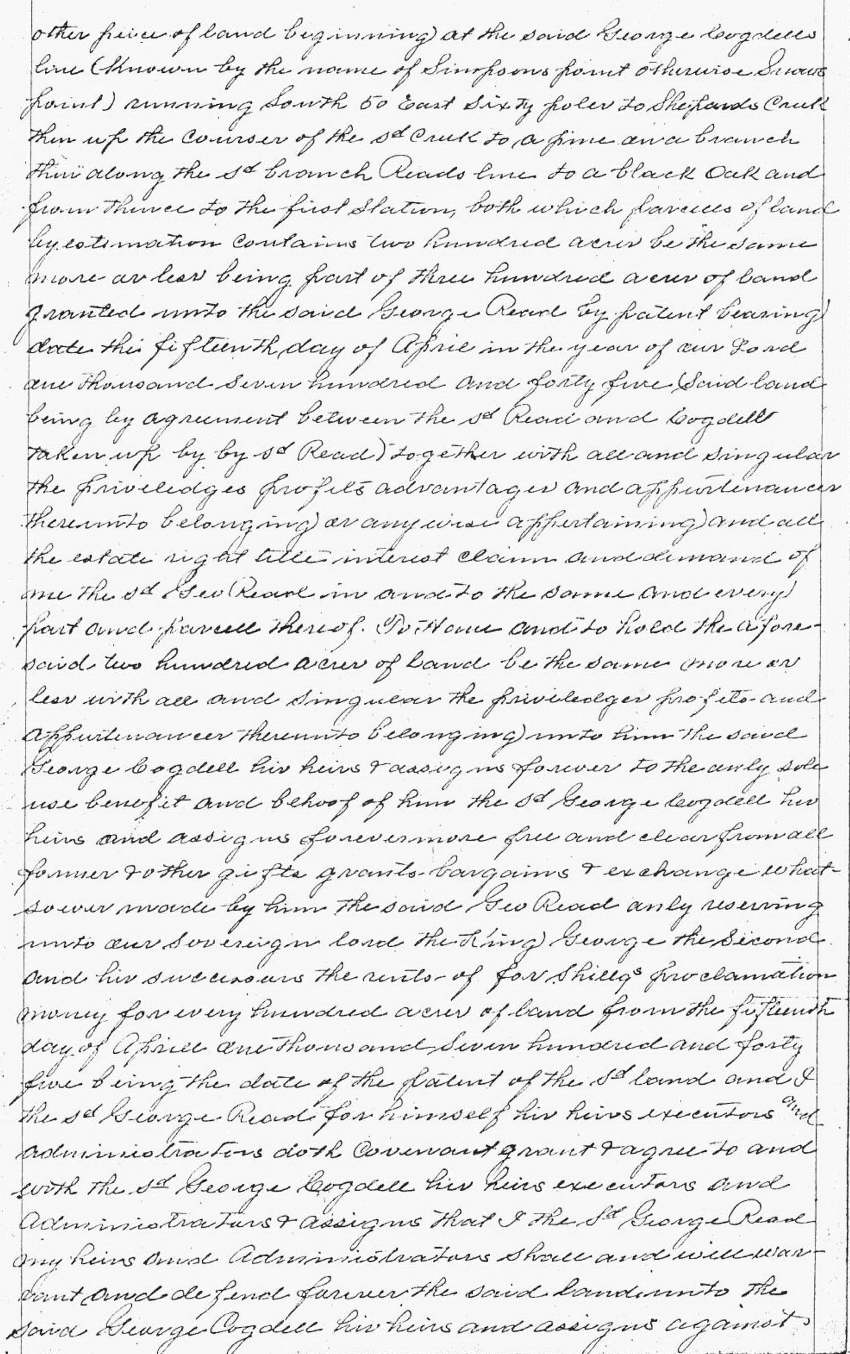 other peice of land beginning at the said George Cogdells
line (known by the name of Simpsons point otherwise Snows
point) running South 50 East Sixty poles to Shepards Creek
then up the courses of the sd Creek to a pine on a branch
then along the sd branch Reads line to a black Oak and
from thence to the first Station, both which parcells of land
by estimation contains two hundred acres be the same
more or less being part of three hundred acres of land
granted unto the said George Read by patent bearing
date the fifteenth day of April in the year of our Lord
one thousand seven hundred and forty five (said land
being by agreement between the sd Read and Cogdell
taken up by by sd Read) together with all and singular
the priveledges profits advantages and appurtenances
thereunto belonging or any wise appertaining and all
the estate right title interest claim and demand of
me the sd Geo Read in and to the same and every
part and parcell thereof. To Have and to hold the afore-
said two hundred acres of land be the same more or
less with all and singular the priviledges profits and
appurtenances thereunto belonging unto him the said
George Cogdell his heirs & assigns forever to the only sole
use benefit and behoof of him the sd George Cogdell his
heirs and assigns forevermore free and clear from all
former & other gifts grants bargains & exchange what-
soever made by him the said Geo Read only reserving
unto our Sovereign lord the King George the Second
and his successors the rents of for shillgs proclamation
money for every hundred acres of land from the fifteenth
day of Aprill one thousand seven hundred and forty
five being the date of the patent of the sd land and I
the sd George Read for himself his heirs executors and
administrators doth Covenant grant & agree to and
with the sd George Cogdell his heirs executors and
Administrators & assigns that I the sd George Read
my heirs and Administrators shall and will war-
rant and defend forever the said land unto the
said George Cogdell his heirs and assigns against